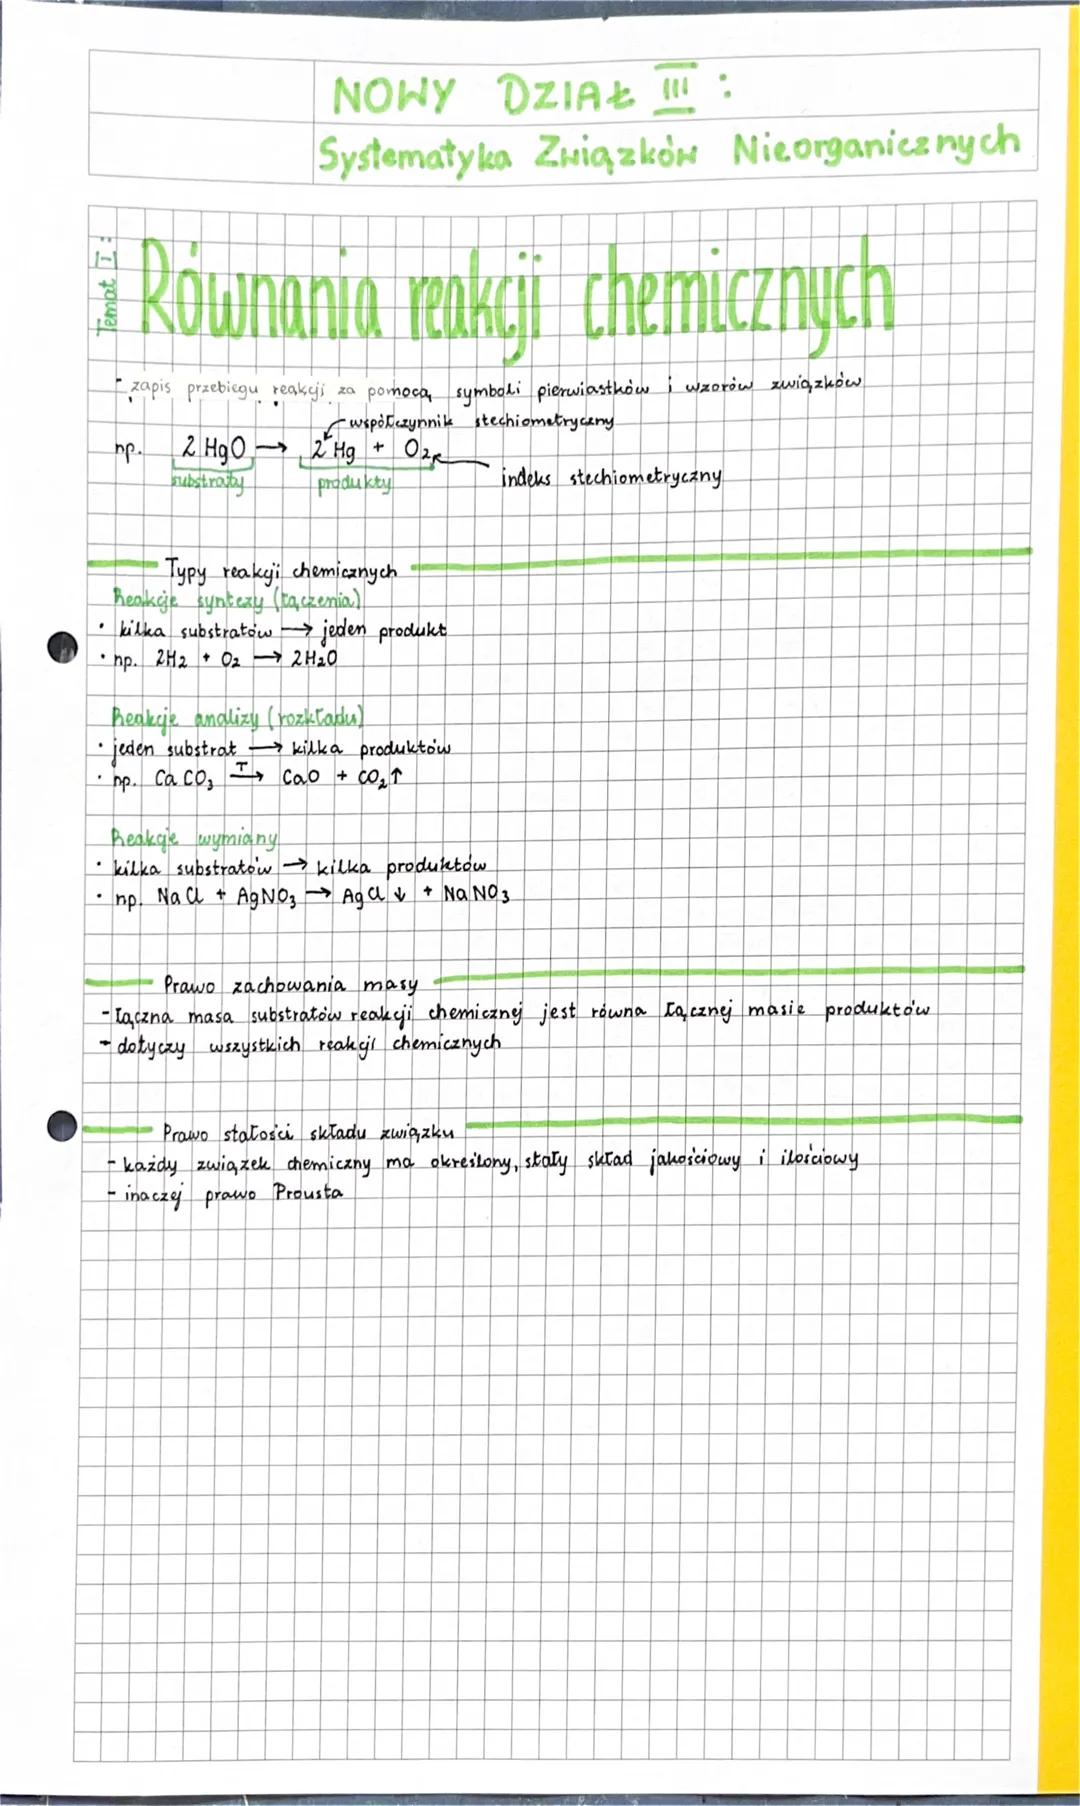 NOWY DZIAŁ III :
Systematyka Związków Nieorganicznych
Temat I :
Równania reakcji chemicznych
- zapis przebiegu reakcji za pomocą symboli pierwiastków i wzorów związków
współczynnik stechiometryczny
np. 2 HgO → 2 Hg + O₂
substraty produkty indeks stechiometryczny
Typy reakcji chemicznych
Reakcje syntezy (łączenia)
• kilka substratów → jeden produkt
• np. 2H₂ + O₂ → 2H₂O
Reakcje analizy (rozkładu)
• jeden substrat → kilka produktów
• np. CaCO₃ T→ CaO + CO₂↑
Reakcje wymiany
• kilka substratów → kilka produktów
• np. NaCl + AgNO₃ → AgCl ↓ + NaNO₃
Prawo zachowania masy
- łączna masa substratów reakcji chemicznej jest równa łącznej masie produktów
- dotyczy wszystkich reakcji chemicznych
Prawo stałości składu związku
- każdy związek chemiczny ma określony, stały skład jakościowy i ilościowy
- inaczej prawo Prousta